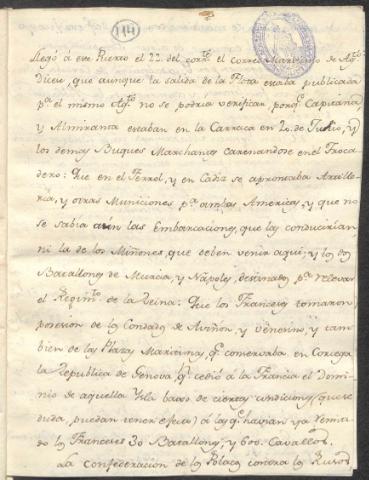 114
Llegó á este Puerto el 22. del corr.te el correo Maritimo de Ag.to
Dicen, que aunque la salida de la Flota estaba publicada
p.a el mismo Ag.to no se podria verificar, porq.e Capitana,
y Almiranta estaban en la Carraca en 20. de Julio, y
los demas Buques Marchantes carenandose en el Troca
dero: Que en el Ferrol, y en Cadiz se aprontaba Artille
ria, y otras Municiones p.a ambas Americas, y que no
se sabía aún las Embarcaciones, que las conducirían
ni la de los Miñones, que deben venir aqui; y los dos
Batallones de Murcia, y Napoles, destinados p.a relevar
el Regim.to de la Reina: Que los Franceses tomaron
posesion de los Condados de Aviñon, y Venesino, y tam
bien de las Plazas Maritimas, q.e conservaba en Corcega
la Republica de Genova, q.e cedió á la Francia el Domi
nio de aquella Ysla baxo de ciertas condiciones (que se
duda, puedan tener efecto) á las q.e havian ya remiti
do los Franceses 30 Batallones, y 600. Cavallos.
La Confederacion de los Polacos contra los Rusos